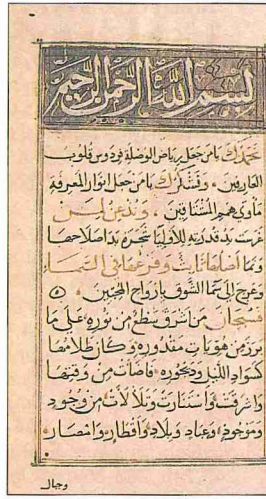 بسم الله الرحمن الرحيم
نحمدك يا من جعل رياض الوصلة فردوس قلوب
العارفين، ونشكرك يا من جعل انوار المعرفة
مأوي همم المشتاقين، ونذعن لمن
غرست يد قدرته للأوليا شجرة يد اصلاحها
ونما أصلها ثابت وفرعها في السماء
وعرج إلى سما الشوق بأرواح المحبين،
فسبحان من اشرق سطع من نوره على ما
برز من هويات مقدوره وكان ظلامها
كسواد الليل وديجوره فاضأت من وقتها
واشرقت واستنارت وتلألأت من وجود
وموجود، وعباد وبلاد، وأقطار وامصار،
وجال